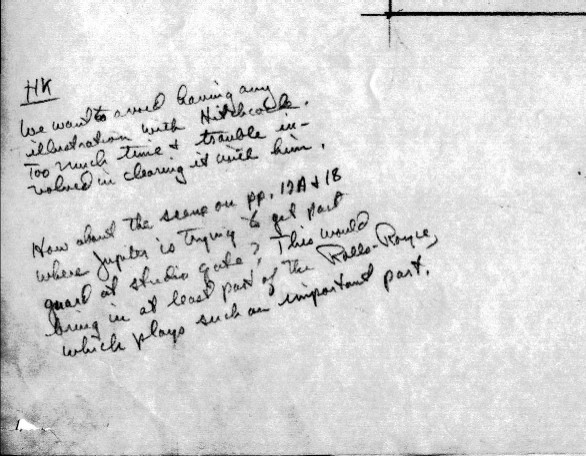 HK
We want to avoid having any
illustration with Hitchcock.
Too much time & trouble in-
volved in clearing it with him.
How about the scene on pp. 17A & 18
where Jupiter is trying to get past
guard at studio gate? This would
bring in at least part of the Rolls-Royce,
which plays such an important part.
1.